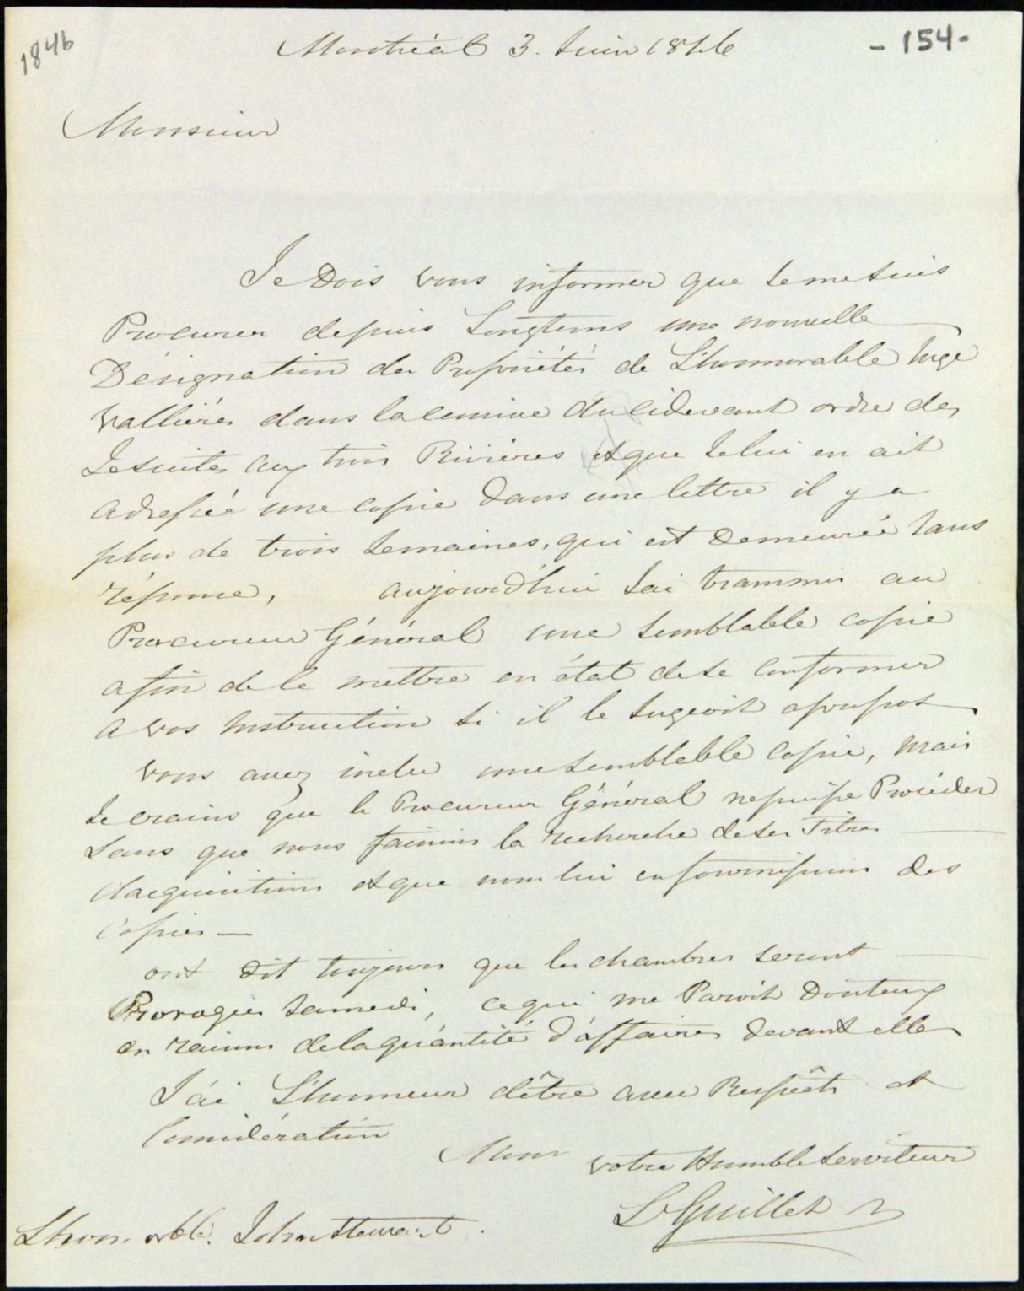 1846
- 154 -
Montréal 3. Juin 1846
Monsieur
Je Dois vous informer que Je me suis
Procurer depuis Longtems une nouvelle
Désignation des Propriétés de L'honnorable Juge
Vallières dans la censive du cidevant ordre des
Jesuites aux trois Rivières et que Je lui en ait
adressée une copie dans une lettre il y a
plus de trois semaines, qui est demeurée sans
réponse, aujourd'hui J'ai trammis au
Procureur Général une semblable copie
afin de le mettre en état de se conformer
a vos Instruction si il le Jugeoit apropos
vous avez inclu une semblable copie, mais
Je crains que le Procureur Général ne puisse Procéder
sans que nous faisions la recherche de ses Titres
d'acquisitions et que nous lui en fournissions des
Copies —
ont dit toujours que les chambres seront
Proroguées samedi, ce qui me Paroit Douteux
en raison de la quantité d'affaires devant elles
J'ai L'honneur d'être avec Respêcts et
Considération
Monsr votre Humble Serviteur
L Guillet
L'honorble. John Stewart.